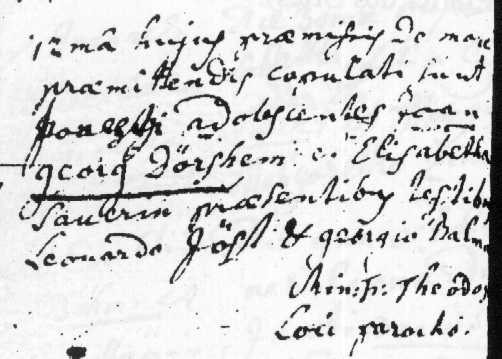 12mâ hujus præmissis de more
præmittendis copulati sunt
honesti adolescentes Joan
georg Dörshem et Elisabetha
Sauerin præsentibus testibus
Leonardo Jöst & georgio Balm
Theodo
Loci parocho